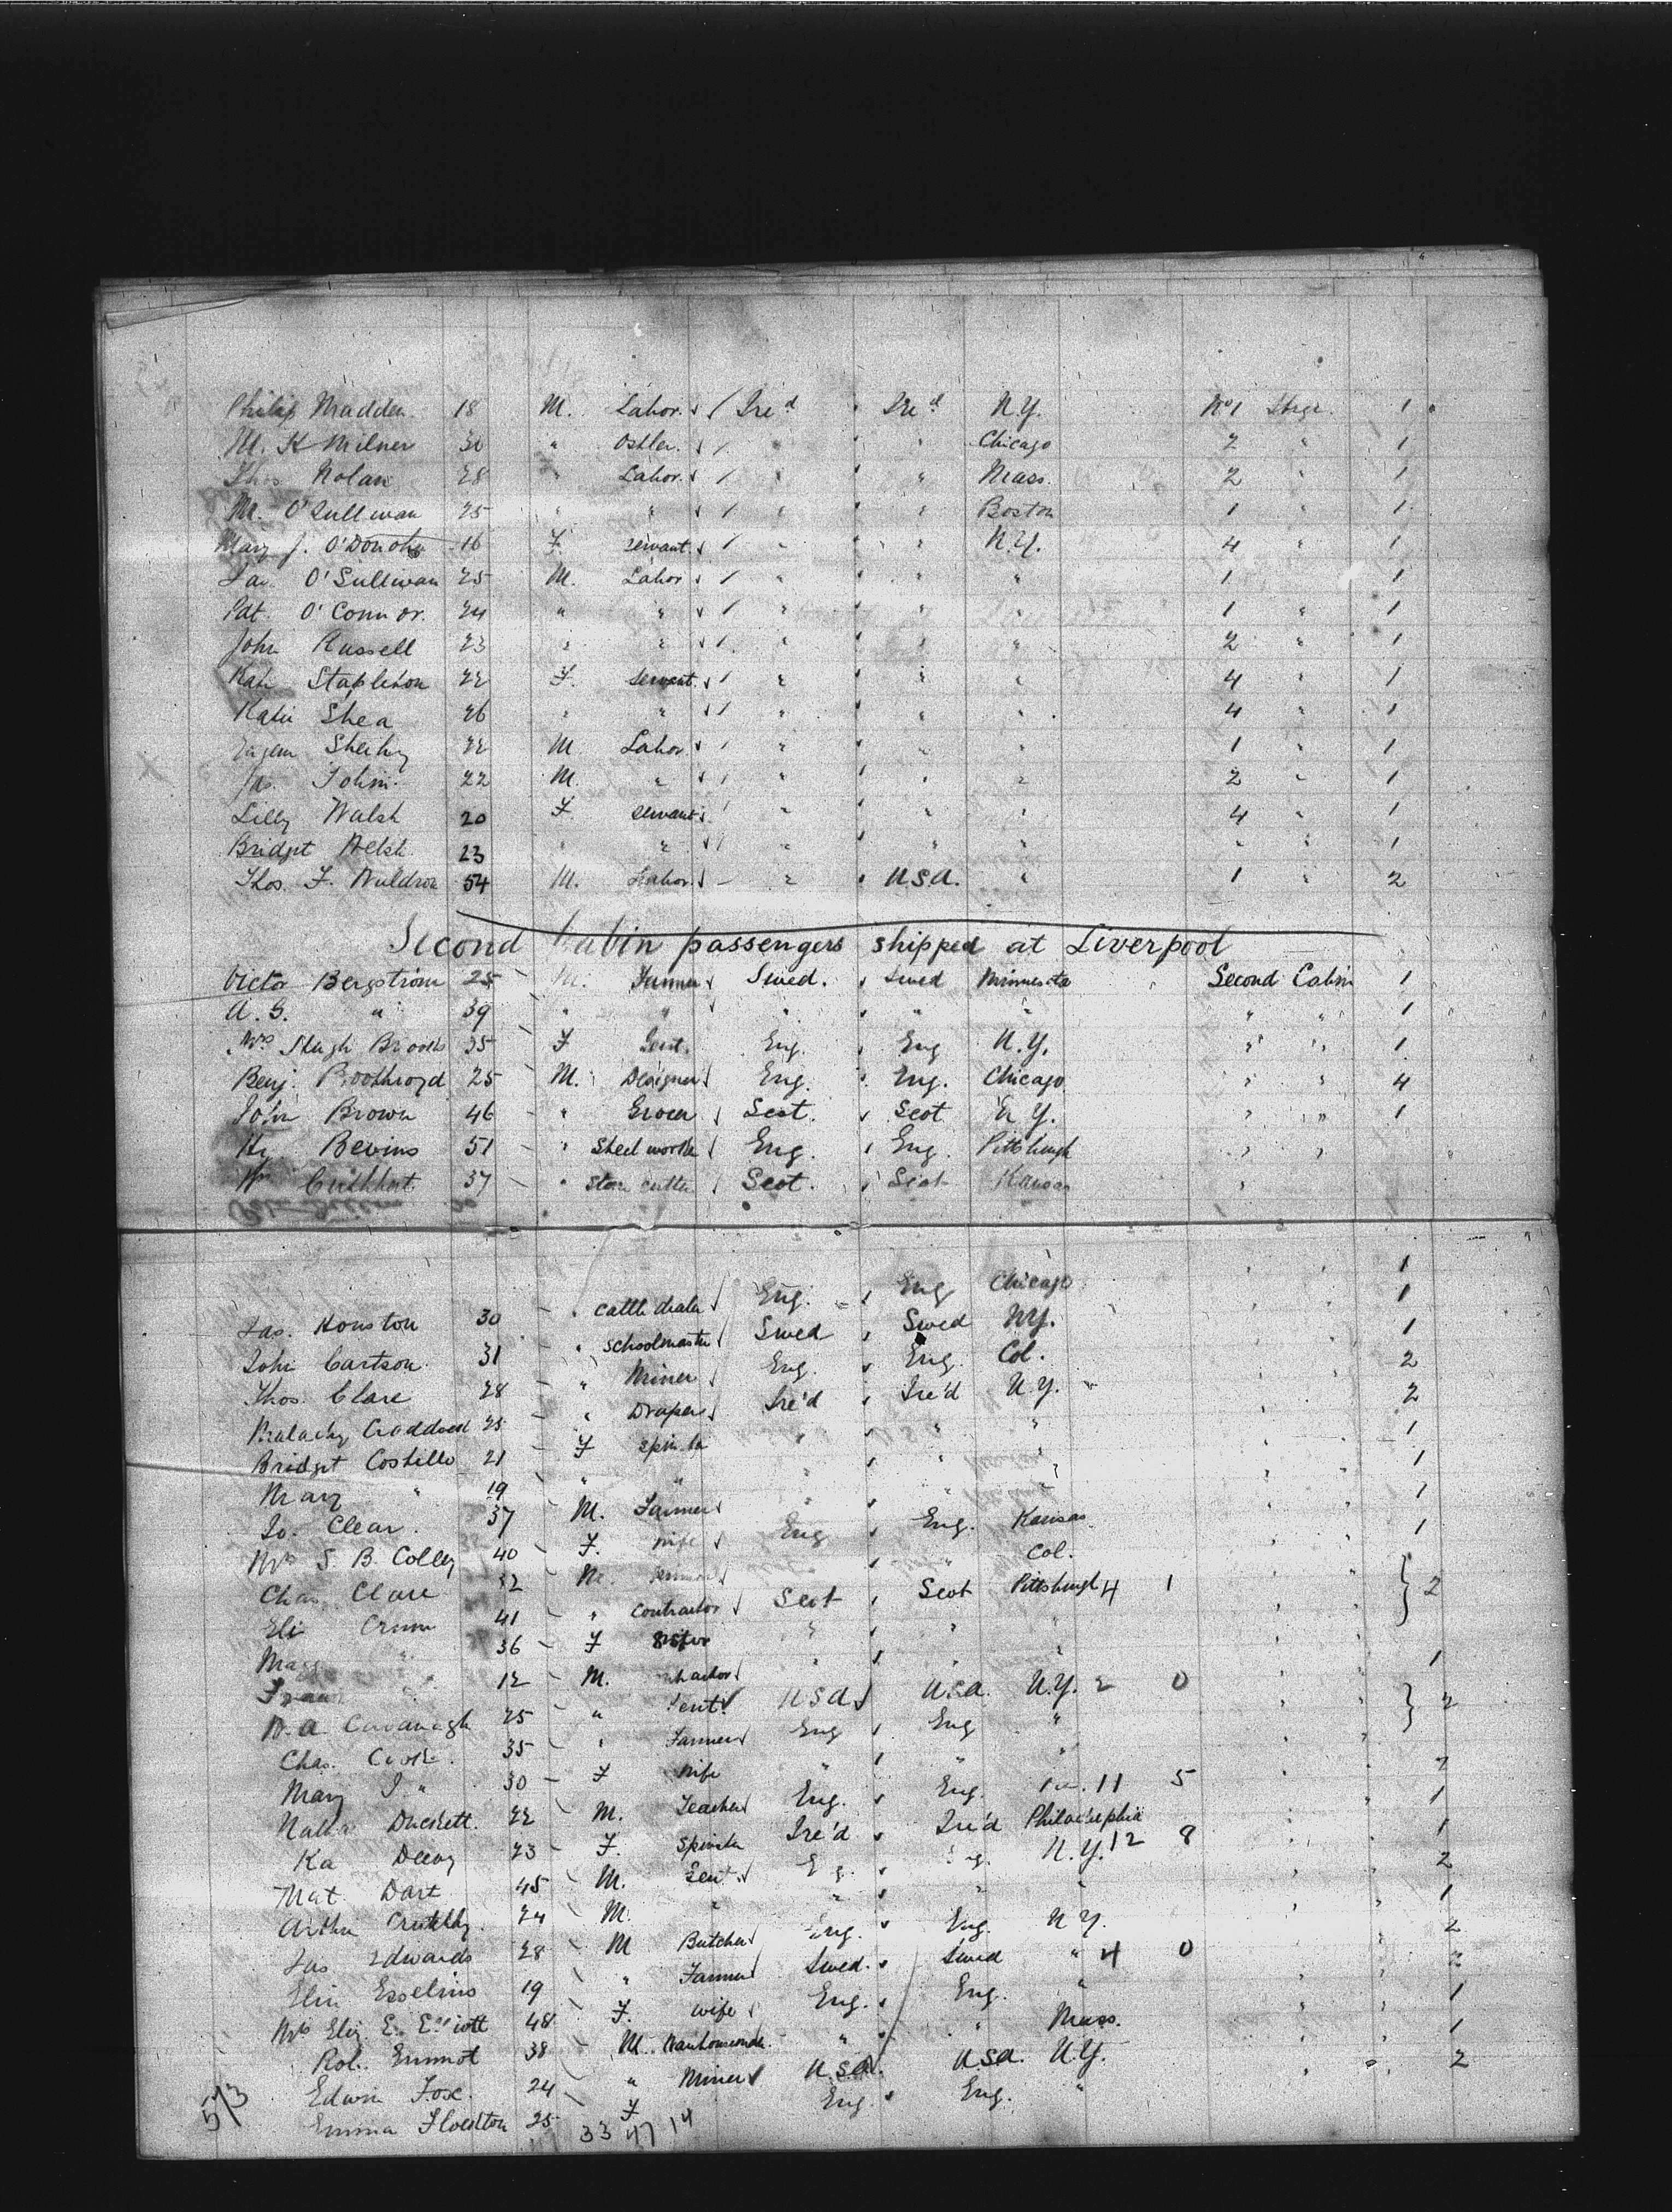 Philip Madden 18 M. Labor. / Ire'd " Ire'd N.Y. No 1 Strge 1
M. K Milner 30 " Ostler. / " " Chicago 2 " 1
Thos Nolan 28 " Labor. / " " Mass. 2 " 1
M. O'Sullivan 25 " " / " " Boston 1 " 1
Mary J. O'Donohu 16 F. servant. / " " N.Y. 4 " 1
Jas O'Sullivan 25 M. Labor / " " " 1 1
Pat. O'Connor. 24 " " / " " " 1 " 1
John Russell 23 " " / " " " 2 " 1
Kate Stapleton 22 F. servant. / " " " 4 " 1
Katie Shea 26 " " / " " " 4 " 1
Eugene Sheehy 22 M Labor / " " " 1 " 1
Jas. 22 M. " / " " " 2 " 1
Lilly Walsh 20 F servant / " " " 4 " 1
Bridget Welsh 23 " " / " " " " " 1
Thos. F. Waldron 54 M. Labor. – " USA. " 1 " 2
Second Cabin passengers shipped at Liverpool
Victor Bergstrom 25 M. Farmer Swed. Swed Minnesota Second Cabin 1
A. G. " 39 " " " " " " " 1
Mrs Brooks 35 F Eng. Eng N.Y. " " 1
Benj. Boothroyd 25 M. Designer Eng. Eng. Chicago " " 4
John Brown 46 " Grocer Scot. Scot N.Y. " " 1
Hy. Bevins 51 " Steel worker Eng. Eng. Pittsburgh " "
Wm Cuthbert 37 " Stone cutter Scot. Scot Kansas "
1
Jas. Houston 30 " cattle dealer Eng. Eng Chicago 1
John Carlson 31 " schoolmaster Swed Swed NY. 1
Thos. Clare 28 " Miner Eng. Eng. Col. 2
Malachy 25 " Draper Ire'd Ire'd N.Y. 2
Bridget Costillo 21 F spinster " " " 1
Mary " 19 " " " " " 1
Jo. Clear. 37 M. Farmer " " " 1
Mrs S. B. Colley 40 F. wife Eng Eng. Kansas 1
Chas. Clare 32 M. " " Col.
Eli Crum 41 " Contractor Scot Scot Pittsburgh 4 1 } 2
" 36 F Sister " " "
" 12 M. " " " 1
W. A. Cavanagh 25 " Gent. USA USA. N.Y. 2 0
Chas. Cook 35 " Farmer Eng Eng " } 2
Mary J. " 30 F wife " " "
Duckett. 22 M. Teacher Eng. Eng. 11 5 1
Deevy 23 F. Spinster Ire'd Ire'd Philadelphia 1
Mat Dart 45 M. Gent. Eng. Eng. N.Y. 12 8 2
Arthur 24 M. " " " " 1
Jas Edwards 28 M Butcher Eng. Eng. N.Y. 2
Elin Esselius 19 " Farmer Swed. Swed " 4 0 2
Mrs Eliz. E. Elliott 48 F. wife Eng. Eng. " 1
Rob. Emmot 38 M. Warehouseman " " Mass. 1
Edwin Fox. 24 " Miner U.S.A. USA. N.Y. 2
Emma 25 F Eng. Eng. "
573
33 47 14